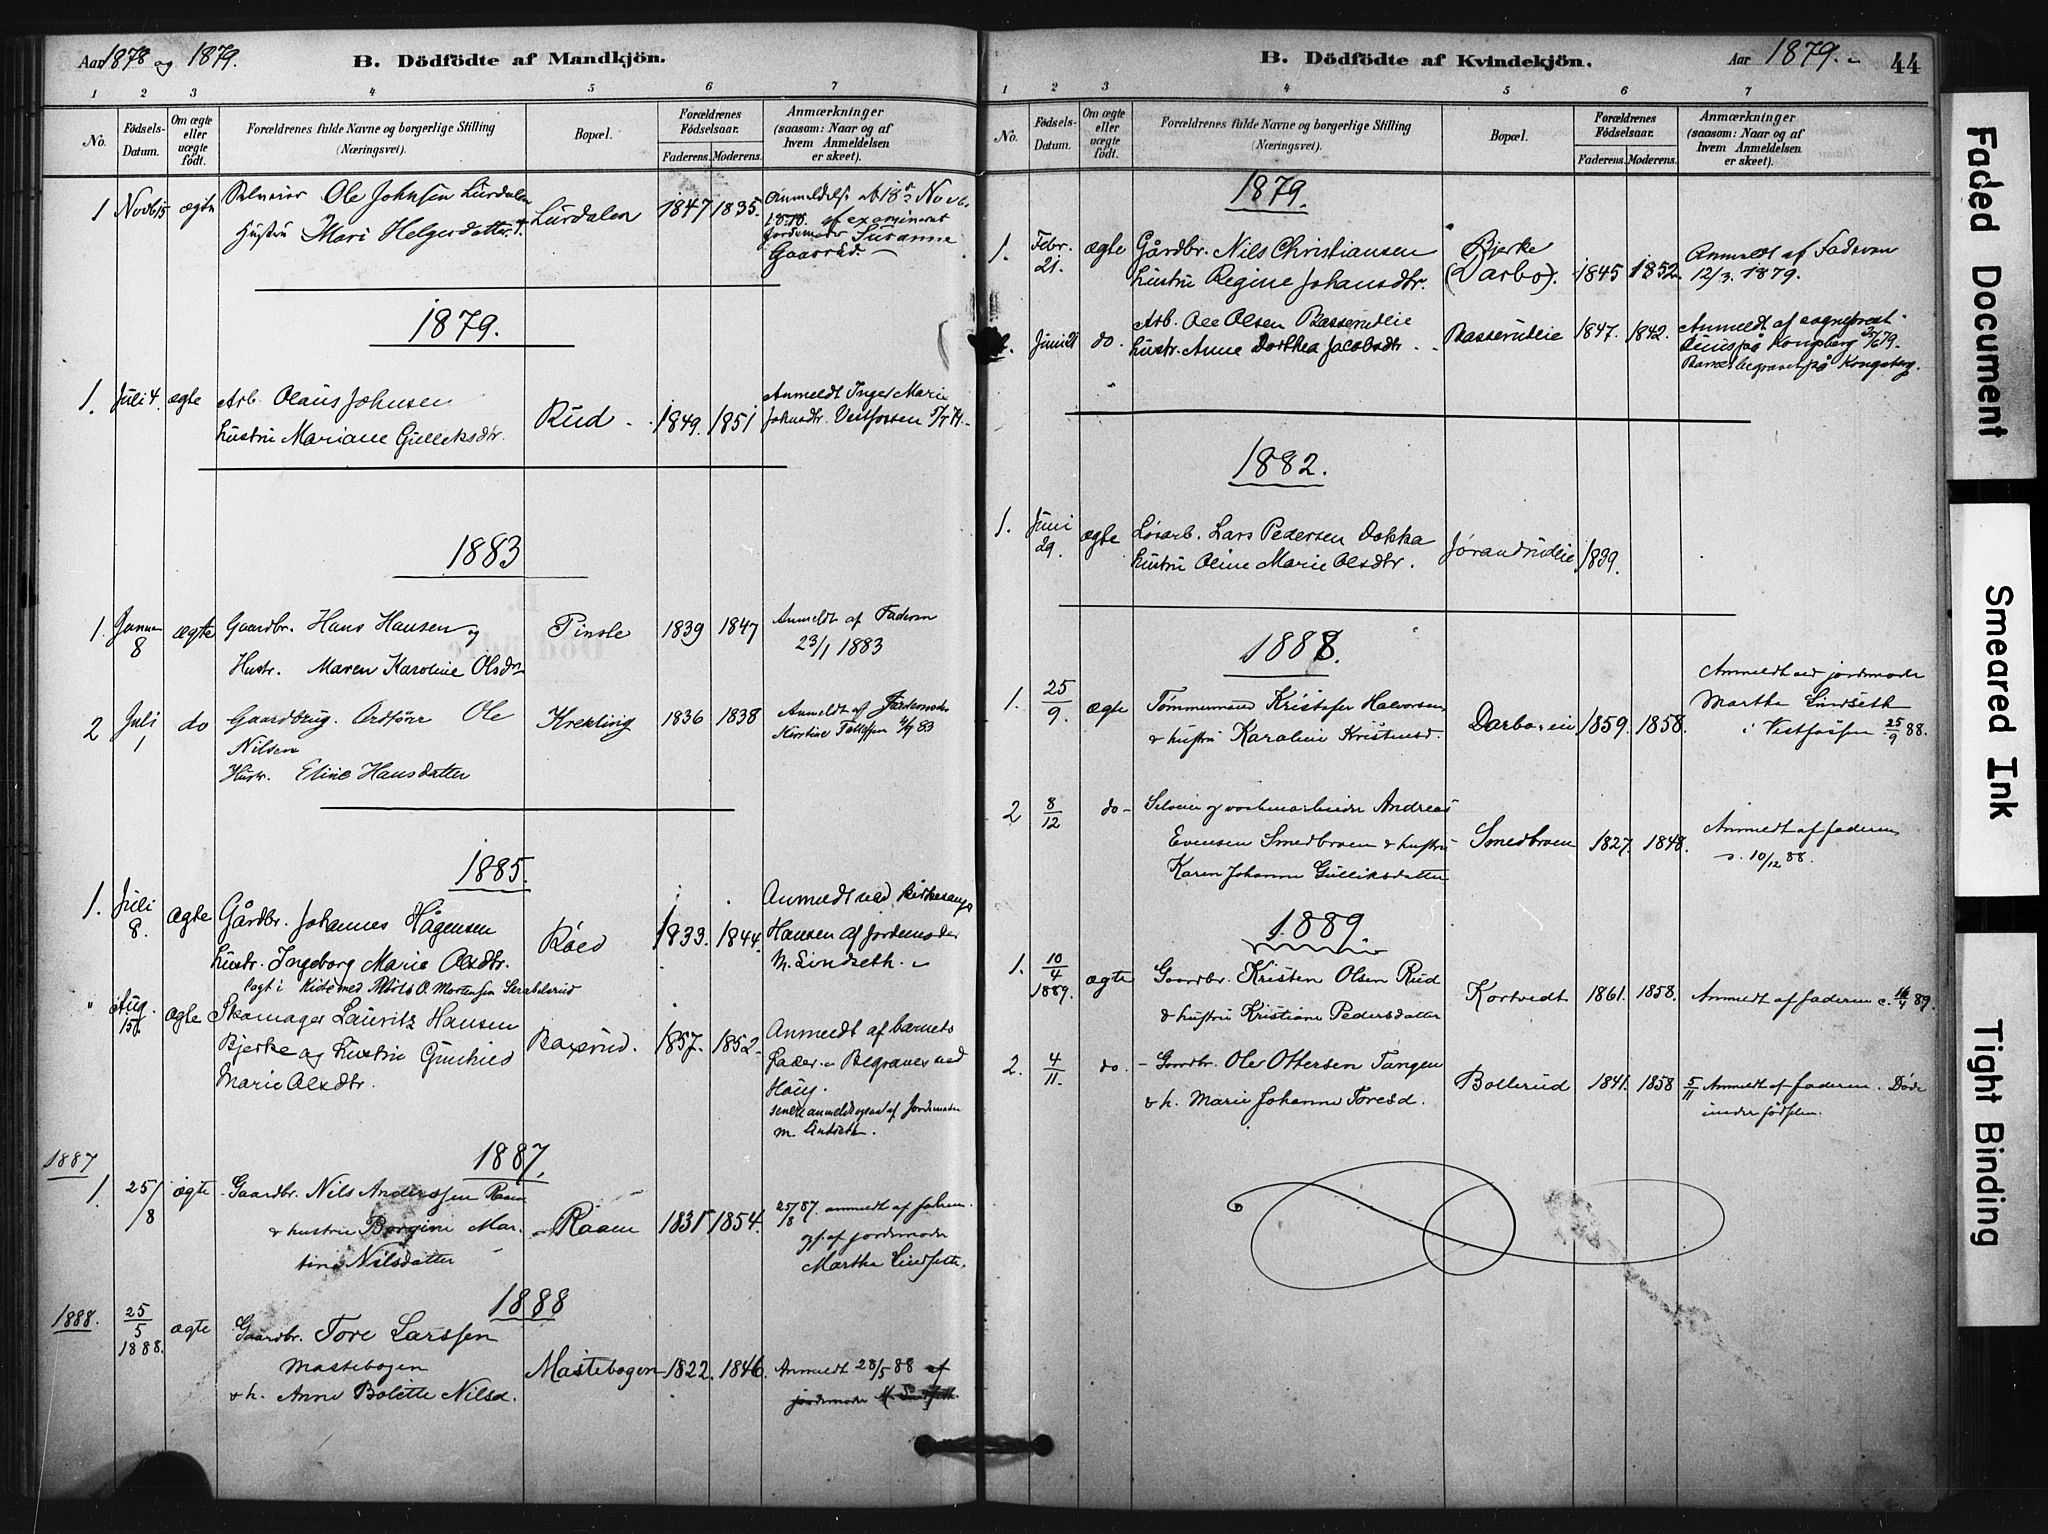 Aar 1878 og 1879.
B. Dödfödte af Mandkjön.
1 2 3 4 5 6 7
No.
Födsels-Datum.
Om ægte eller uægte födt.
Forældrenes fulde Navne og borgerlige Stilling (Næringsvei).
Bopæl.
Forældrenes Födselsaar.
Faderens. Moderens.
Anmærkninger (saasom: Naar og af hvem Anmeldelsen er skeet).
1 Novb 15 ægte Ole Johnsen Lurdalen
Hustru Mari Helgesdatter
Lurdalen 1847 1835.
Anmeldelse
1878. af examineret
Jordemoder Susanne
Gaasrud.
1879.
1. Juli 4. ægte Arb. Olaus Johnsen
Hustru Mariane Gulleksdtr.
Rud 1849. 1851
Anmeldt Inger Marie
Johnsdtr. Vestfossen
1883
1. Januar 8 ægte Gaardbr. Hans Hansen og
Hustr. Maren Karoline Olsdtr
1839 1847
Anmeldt af Faderen
23/1 1883
2 Juli 1 do Gaardbrug. Ordförer Ole
Nilsen
Hustr. Eline Hansdatter
Krekling 1836 1838
Anmeldt af Jordemoder
Kirstine
1885.
1. Juli 8. ægte Gårdbr. Johannes Hågensen
hustr. Ingeborg Marie Olsdtr.
lagt i Kiste med Mons O. Mortensen
Röed 1833. 1844.
Anmeldt ved Kirkesanger
Hansen af Jordemoder
M. Lindseth.
" Aug. 15. ægte Skomager Lauritz Hansen
Bjerke og hustru Gunhild
Marie Olsdtr.
1857. 1852.
Anmeldt af barnets
Fader. Begraves ved
Houg.
senere anmeldt ogsaa af Jordemoder
M. Lindseth.
1887
1887.
1 25/8 ægte Gaardbr. Nils Anderssen Raaen
& hustru Borgine Mar-
tine Nilsdatter
Raaen 1835 1854.
25/8 87. anmeldt af faderen
og af jordemoder
Martha Lindseth.
1888.
1888
25/5 1888. ægte Gaardbr. Tore Larssen
Mastebogen
& h. Anne Bolette Nilsd.
Mastebogen 1822. 1846.
Anmeldt 28/5 88 af
jordemoder M. Lindseth.
B. Dödfödte af Kvindekjön.
Aar 1879.
44
1 2 3 4 5 6 7
No.
Födsels-Datum.
Om ægte eller uægte födt.
Forældrenes fulde Navne og borgerlige Stilling (Næringsvei).
Bopæl.
Forældrenes Födselsaar.
Faderens. Moderens.
Anmærkninger (saasom: Naar og af hvem Anmeldelsen er skeet).
1879.
1. Febr. 21. ægte Gårdbr. Nils Christiansen
hustru Regine Johansdtr.
Bjerke
(Darbo). 1845 1852
Anmeldt af Faderen
12/3. 1879.
Juni do. Arb. Ole Olsen Basserudlie
hustr. Anne Dorthea Jacobsdtr.
Basserudlie 1847. 1842.
Anmeldt af sogneprest
på Kongsberg
Barnet begravet på Kongsberg.
1882.
1. Juni 29. ægte Løsarb. Lars Pedersen Dokka
hustru Oline Marie Olsdtr.
Jørandrudlie 1839.
1888.
1. 25/9. ægte Tømmermand Kristofer Halvorsen
& hustru Karoline Kristensd.
Darboeie 1859. 1858.
Anmeldt ved jordmoder
Martha Lindseth
i Vestfossen 25/9 88.
2 8/12 do Andreas
Evensen Smedbroen & hustru
Karen Johanne Gulliksdatter
Smedbroen 1827. 1848.
Anmeldt af faderen
10/12 88.
1889.
1. 10/4 1889. ægte Gaardbr. Kristen Olsen Rud
& hustru Kristiane Pedersdatter
Kortvedt 1861. 1858.
Anmeldt af faderen 89.
2. 4/11. do. Gaardbr. Ole Ottersen Tangen
& h. Marie Johanne Toresd.
Bollerud 1841. 1858
5/11 Anmeldt af faderen. Døde
under fødslen.
Faded Document
Smeared Ink
Tight Binding